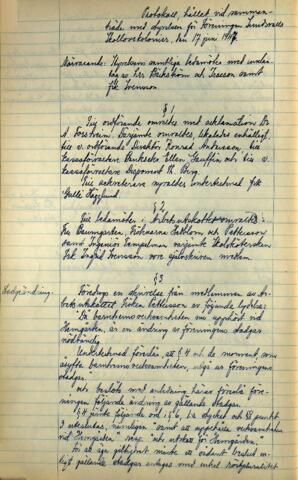 Protokoll, hållet vid samman-
träde med styrelsen för Föreningen Sundsvalls
Skollovskolonier, den 17 juni 1947.
Närvarande: Styrelsens samtliga ledamöter med undan-
tag av hrr Bäckström och Isacson samt
frk Svensson.
§ 1
Till ordförande omvaldes med acklamation Dr
A. Forsheim. Därjämte omvaldes, likaledes enhälligt,
till v. ordförande Direktör Konrad Andersson, till
kassaförvaltare Banksekr. Ellen Stauffen och till v.
kassaförvaltare Disponent H. Berg.
Till sekreterare nyvaldes Underteknad frk
Gulli Hägglund.
§ 2
Till ledamöter i Arbetsutskottet omvaldes:
Fru Baumgarten, Fröknarna Dahlbom och Pettersson
samt Ingeniör Tengelman varjämte Skolsköterskan
Frk Ingrid Svensson
§ 3
Stadgeändring.
Föredrogs en skrivelse från medlemmen av Ar-
betsutskottet Fröken Pettersson av följande lydelse:
"Då barnhemsverksamheten nu upphört vid
Hemgården, är en ändring av föreningens stadgar
nödvändig.
Undertecknad föreslår, att § 4 och de moment, som
syfta barnhemsverksamheten, utgå ur föreningens
stadgar."
och beslöts med anledning härav föreslå före-
ningen följande ändring av gällande stadgar:
§ 4 jämte följande ord i § 6, 1:a stycket och § 8 punkt
3 uteslutas, nämligen "samt att upprätthålla verksamheten
vid Hemgården" resp. "och utskott för Hemgården".
till att äga giltighet måste ett sådant beslut en-
ligt gällande stadgar antagas med enkel röstpluralitet